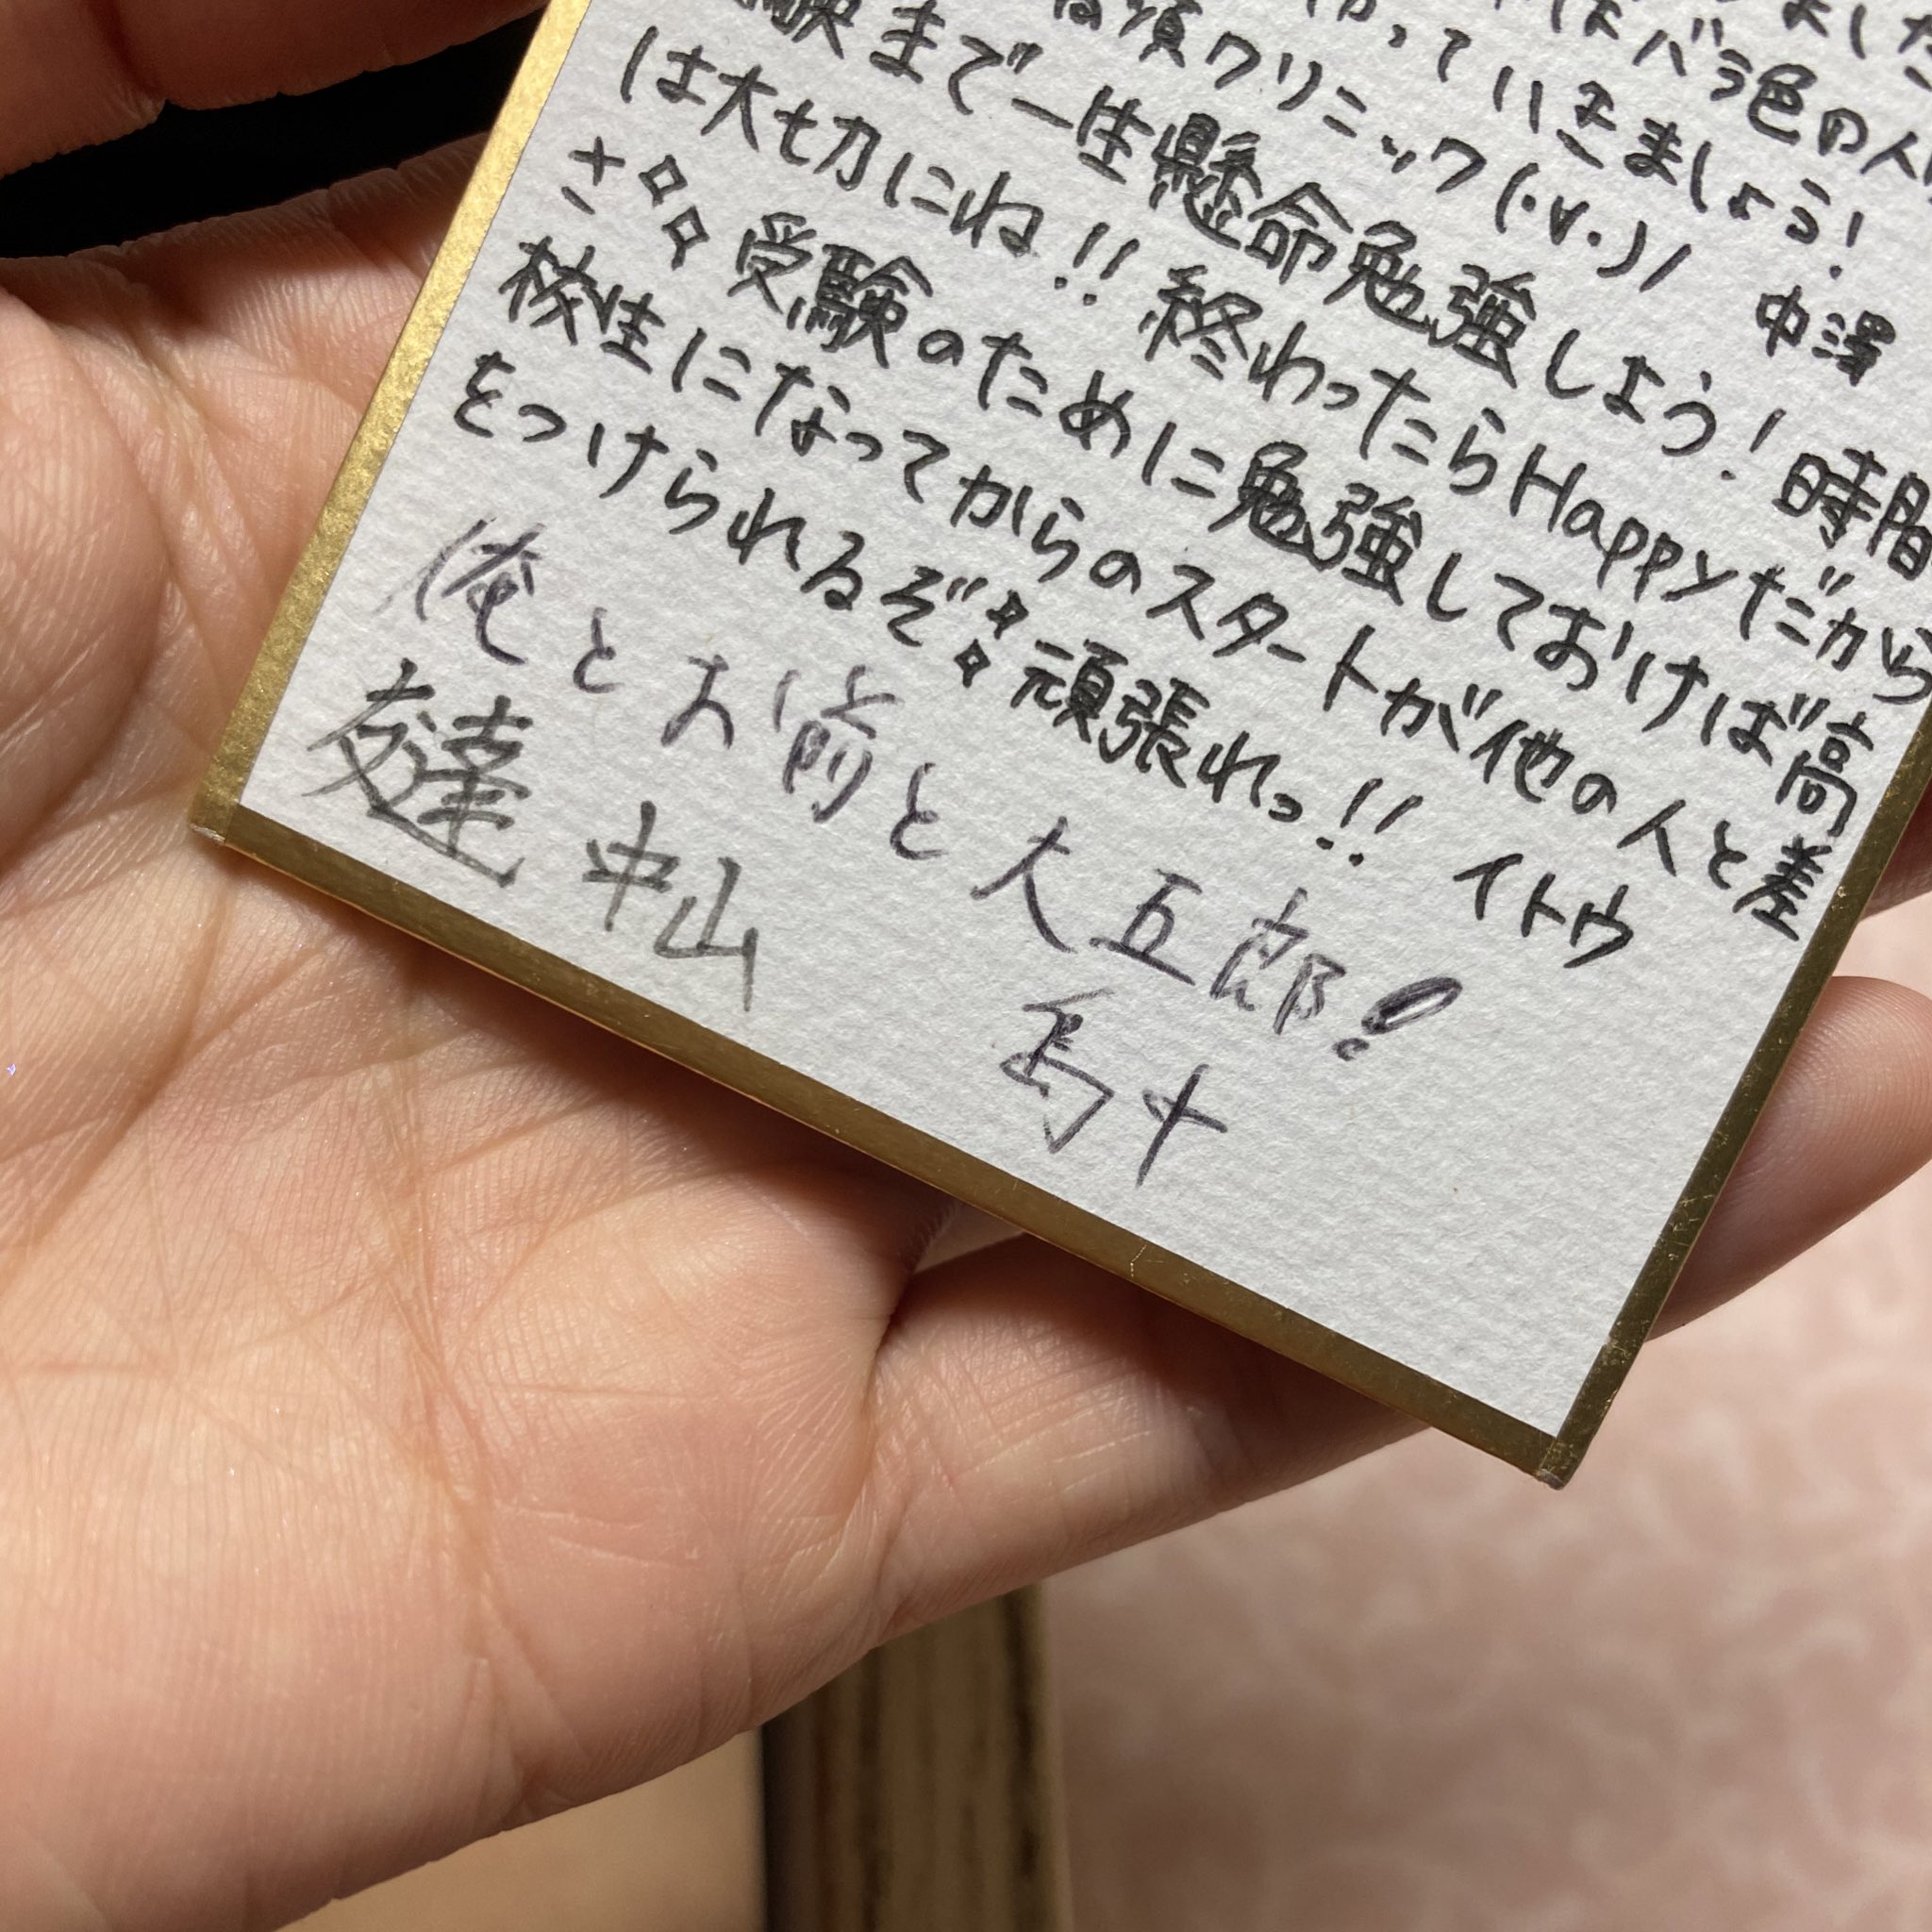 ました
はバラ色の人
っていきましょう!
クリニック(・∀・)/ 中澤
験まで一生懸命勉強しよう!時間
は大切にね!!終わったらHappyだから
さ 受験のために勉強しておけば高
校生になってからのスタートが他の人と差
をつけられるぞ 頑張れっ!! イトウ
俺とお前と大五郎!
友達 中山